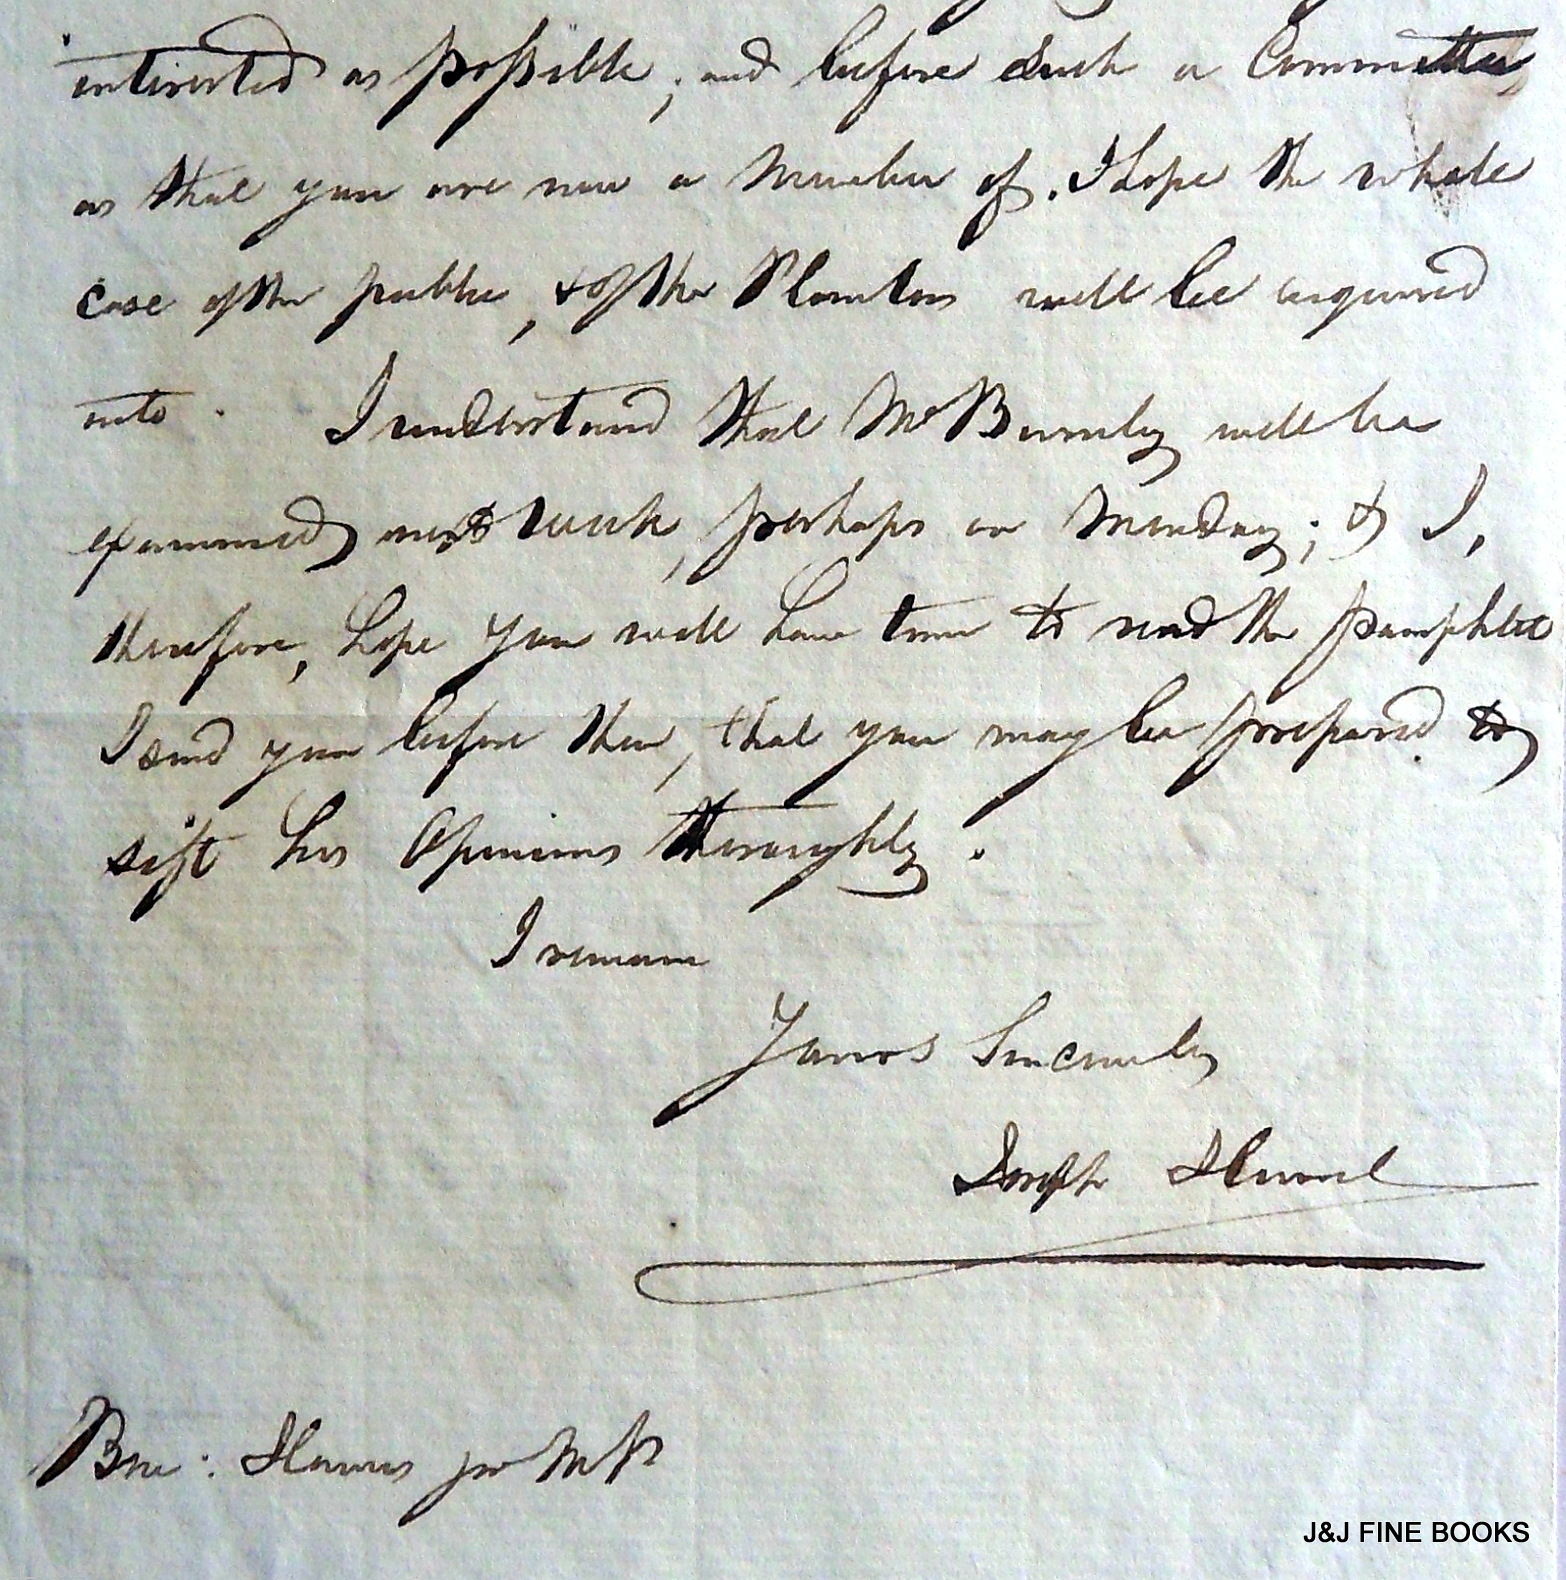 interested as possible, and before such a Committee,
as that you are now a Member of. I hope the whole
case of the public, & of the Planters will be enquired
into. I understand that Mr Burnley will be
examined next week, perhaps on Monday; & I,
therefore, hope you will have time to read the pamphlet
I send you before then, that you may be prepared to
sift his Opinions thoroughly.
I remain
Yours Sincerely
Joseph Hume
Ben: Hawes jnr MP
J&J FINE BOOKS